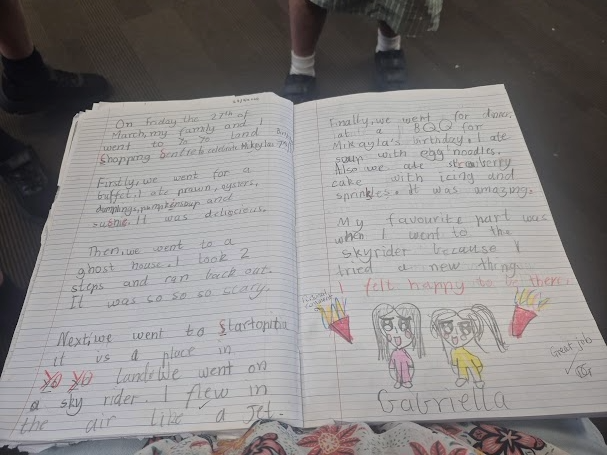 On Friday the 27th of
March, my family and I
went to Yo Yo land
shopping sentre to celebrate Mikayla's 7th
Birth
Firstly, we went for a
buffet. I ate prawn, oysters,
dumplings, pumpkinsoup and
sushie. It was delicious.
Then, we went to a
ghost house. I took 2
steps and ran back out.
It was so so so scary.
Next, we went to Startopita
it is a place in
Yo Yo land. We went on
a sky rider. I flew in
the air like a Jet.
Finally, we went for dinner,
at a BQQ for
Mikayla's birthday. I ate
soup with egg noodles.
Also we ate strawberry
cake with icing and
sprinkles. It was amazing.
My favourite part was
when I went to the
skyrider because I
tried a new thing.
I felt happy to be there.
Great job
Gabriella